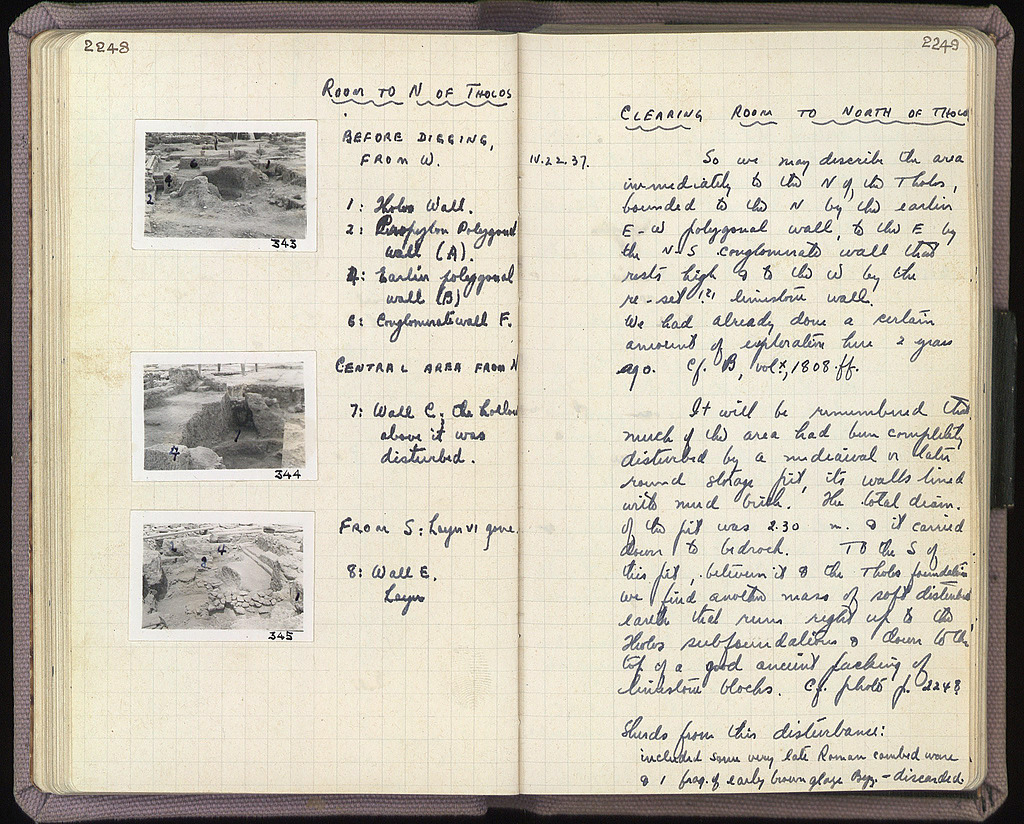 2248
ROOM TO N OF THOLOS
BEFORE DIGGING,
FROM W.
1: Tholos Wall.
2: Propylon Polygonal
wall (A).
4: Earlier polygonal
wall (B)
6: Conglomerate wall F.
343
CENTRAL AREA FROM N
7: Wall C; the hollow
above it was
disturbed.
344
FROM S: Layer VI gone.
8: Wall E.
Layer
345
2249
CLEARING ROOM TO NORTH OF THOLOS
IV.22.37.
So we may describe the area
immediately to the N of the Tholos,
bounded to the N by the earlier
E-W polygonal wall, to the E by
the N-S conglomerate wall that
rests high & to the W by the
re-set (?) limestone wall.
We had already done a certain
amount of exploration here 2 years
ago. Cf. B, vol. X, 1808 ff.
It will be remembered that
much of the area had been completely
disturbed by a mediaeval or later
round storage pit, its walls lined
with mud brick. The total diam.
of the pit was 2.30 m. & it carried
down to bedrock. To the S of
this pit, between it & the Tholos foundations
we find another mass of soft disturbed
earth that runs right up to the
Tholos subfoundations & down to the
top of a good ancient packing of
limestone blocks. Cf. photo p. 2248
Sherds from this disturbance:
included some very late Roman combed ware
& 1 frag. of early brown glaze Byz. - discarded